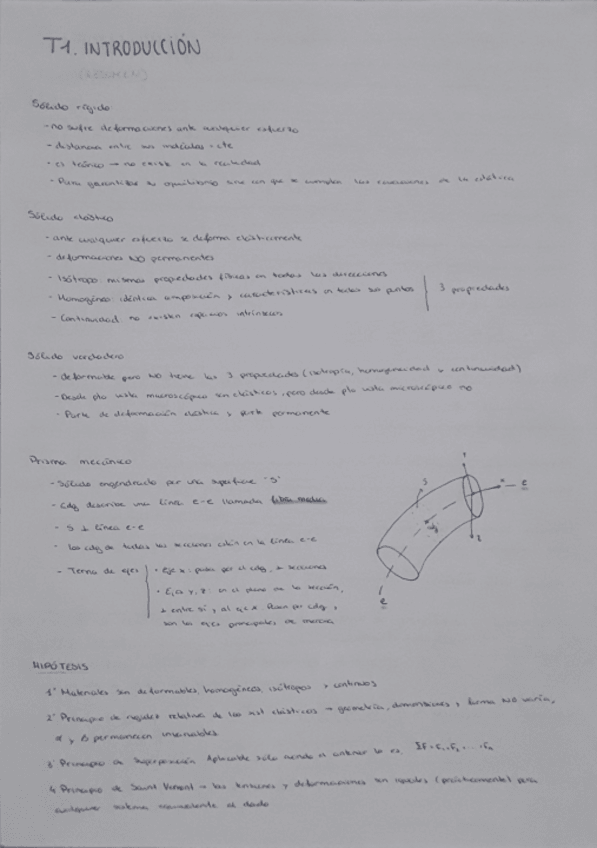 T1. INTRODUCCIÓN
(RESUMEN)
Sólido rígido
- no sufre deformaciones ante cualquier esfuerzo
- distancia entre sus moléculas = cte
- es teórico → no existe en la realidad
- Para garantizar su equilibrio que se cumplan las ecuaciones de la estática
Sólido elástico
- ante cualquier esfuerzo se deforma elásticamente
- deformaciones NO permanentes
- Isótropo: mismas propiedades físicas en todas las direcciones
- Homogéneo: idéntica composición y características en todos sus puntos
3 propiedades
- Continuidad: no existen intrínsecos
Sólido verdadero
- deformable pero NO tiene las 3 propiedades (isotropía, homogeneidad y continuidad)
- Desde pto vista macroscópico son elásticos, pero desde pto vista microscópico no
- Parte de deformación elástica y parte permanente
Prisma mecánico
- Sólido engendrado por una superficie "S"
- Cdg describe una línea e-e llamada fibra media
- S ⊥ línea e-e
- Los cdg de todas las secciones están en la línea e-e
- Terna de ejes
- eje x: pasa por el cdg, ⊥ secciones
- Ejes Y, Z: en el plano de la sección,
⊥ entre sí y al eje x. Pasan por cdg y
son los ejes principales de inercia
S
Y
x
e
cdg
Z
e
HIPÓTESIS
1º Materiales son deformables, homogéneos, isótropos y continuos
2º Principio de rigidez relativa de los sist elásticos → geometría, dimensiones y forma NO varía,
α y β permanecen invariables
3º Principio de Superposición Aplicable sólo cuando
4 Principio de Saint Venant → las tensiones y deformaciones son iguales (prácticamente) para
cualquier sistema equivalente al dado